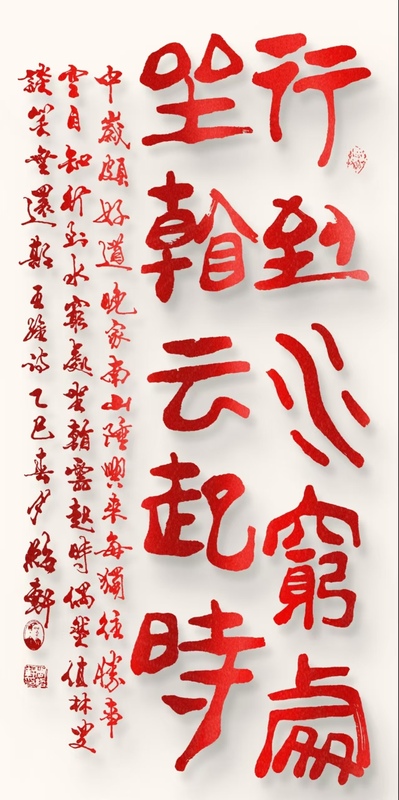 行到水窮處
坐看云起時
中歲頗好道晚家南山陲興來每獨往勝事
空自知行到水窮處坐看雲起時偶然值林叟
談笑無還期王維詩乙巳春